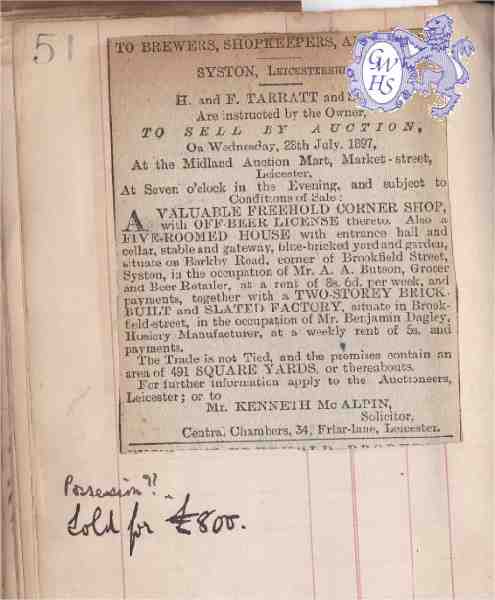 51
TO BREWERS, SHOPKEEPERS, A
SYSTON, LEICESTERSHI
GWHS
H. and F. TARRATT and
Are instructed by the Owner,
TO SELL BY AUCTION,
On Wednesday, 28th July, 1897,
At the Midland Auction Mart, Market-street,
Leicester,
At Seven o'clock in the Evening, and subject to
Conditions of Sale:
A VALUABLE FREEHOLD CORNER SHOP,
with OFF-BEER LICENSE thereto. Also a
FIVE-ROOMED HOUSE with entrance hall and
cellar, stable and gateway, blue-bricked yard and garden,
situate on Barkby Road, corner of Brookfield Street,
Syston, in the occupation of Mr. A. A. Butson, Grocer
and Beer Retailer, at a rent of 8s. 6d. per week, and
payments, together with a TWO-STOREY BRICK-
BUILT and SLATED FACTORY, situate in Brook-
field-street, in the occupation of Mr. Benjamin Dagley,
Hosiery Manufacturer, at a weekly rent of 5s. and
payments.
The Trade is not Tied, and the premises contain an
area of 491 SQUARE YARDS, or thereabouts.
For further information apply to the Auctioneers,
Leicester; or to
Mr. KENNETH McALPIN,
Solicitor,
Central Chambers, 34, Friar-lane, Leicester.
Possession??
Sold for £800.